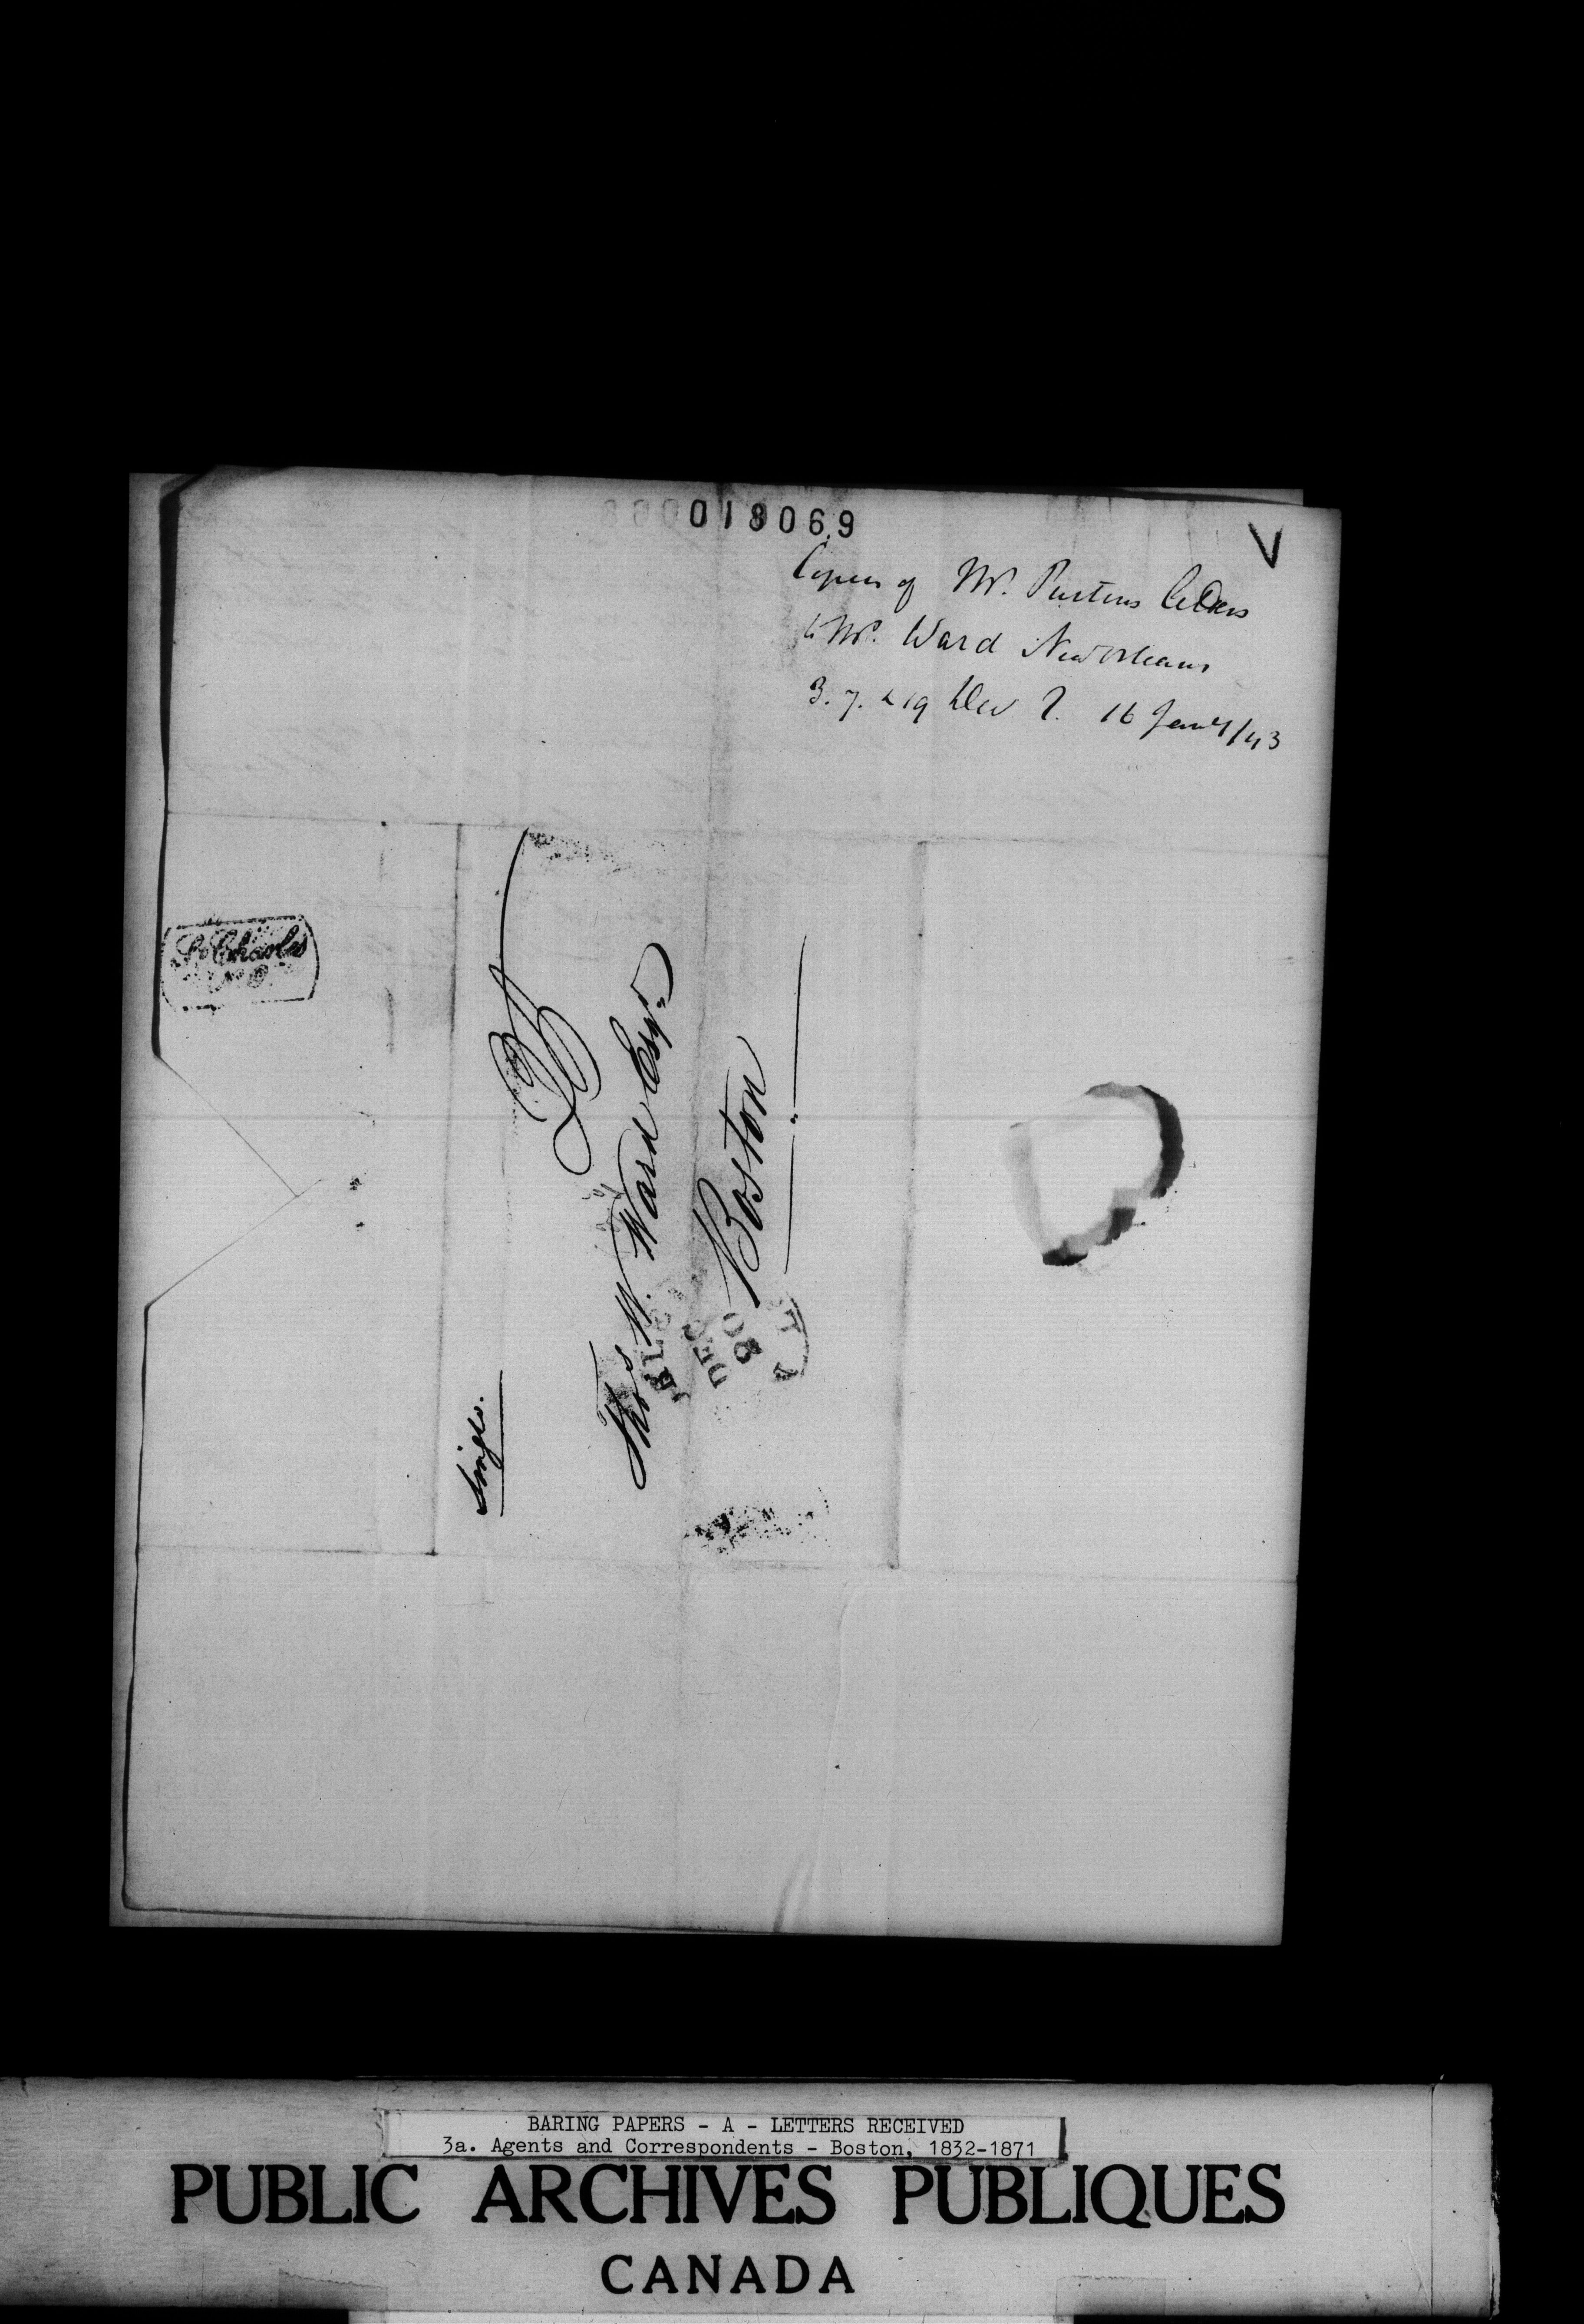 018069
V
Copies of Mr. Purtons letters
to Mr. Ward New Orleans
3. 7. & 19 Dec 16 Jany/43
St Charles
N.O.
Single.
Thos W. Ward Esqr.
Boston
DEC
20
BARING PAPERS - A - LETTERS RECEIVED
3a. Agents and Correspondents - Boston, 1832-1871
PUBLIC ARCHIVES PUBLIQUES
CANADA